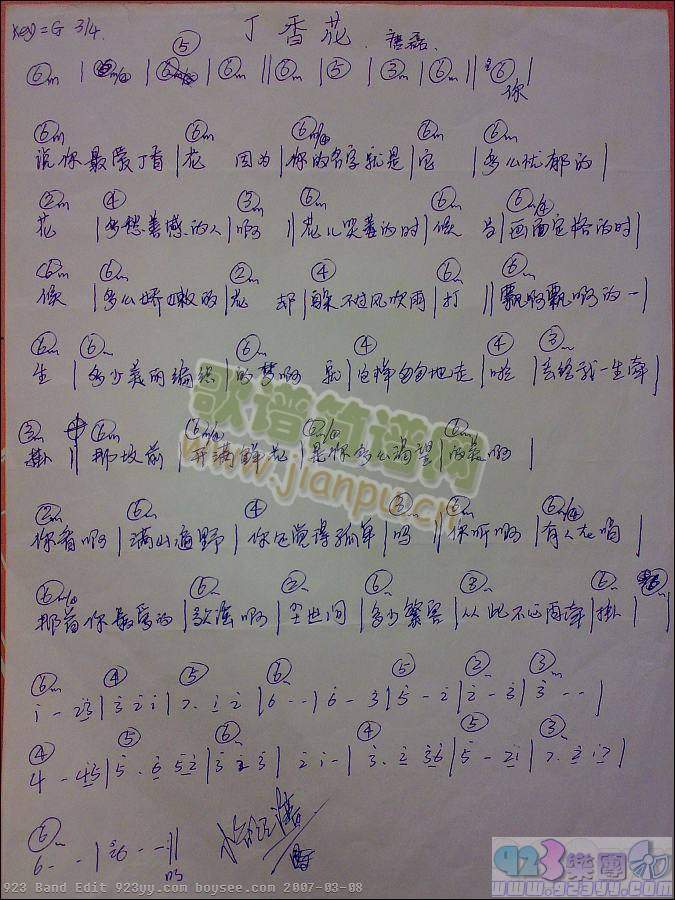 Key=G 3/4. 丁香花 唐磊.
⑤
⑥m | | | ⑥m || ⑥m | ⑤ | ③m | ⑥m || ⑥ |
你
⑥m ⑥m ⑥m/④ ⑥m ⑥m
说你最爱丁香 | 花 因为 | 你的名字就是 | 它 | 多么忧郁的 |
②m ④ ③m ⑥m ⑥m ⑥m/④
花 | 多愁善感的人 | 啊 || 花儿枯萎的时 | 候 当 | 画面定格的时
⑥m ⑥m ②m ④ ⑥m ⑥m
候 | 多么娇嫩的 | 花 却 | 躲不过风吹雨 | 打 || 飘啊飘啊的一 |
⑥m ⑥m ⑥m ④ ④ ③m
生 | 多少美丽编织 | 的梦啊 就 | 这样匆匆地走 | 啦 | 丢给我一生牵 |
③m ⑥m ⑥m/④ ⑥m/④ ⑥m
挂 || 那坟前 | 开满鲜花 | 是你多么渴望 | 的美啊 |
②m ⑥m ④ ③m ⑥m ⑥m/④
你看啊 | 满山遍野 | 你还觉得孤单 | 吗 || 你听啊 | 有人在唱 |
⑥m/④ ⑥m ②m ⑥m ③m ⑥m
那首你最爱的 | 歌谣啊 | 尘世间 | 多少繁芜 | 从此不必再牵 | 挂 |
⑥m ④ ⑤ ⑥m ⑤ ②m ③m
i - 23 | 3 2 i | 7. i 2 | 6 - - | 6 - 3 | 5 - 2 | 2 - 3 | 3 - - |
④ ⑤ ⑥m ④ ⑤ ③m
4 - 45 | 5. 6 52 | 3 2 3 | 2 i - | 3. 2 36 | 5 - 2i | 7. 2 i7 |
⑥m
6 - - | 26 - - ||
吗
歌谱简谱网
www.jianpu.cn
923 Band Edit 923yy.com boysee.com 2007-03-08
923樂團
www.923yy.com